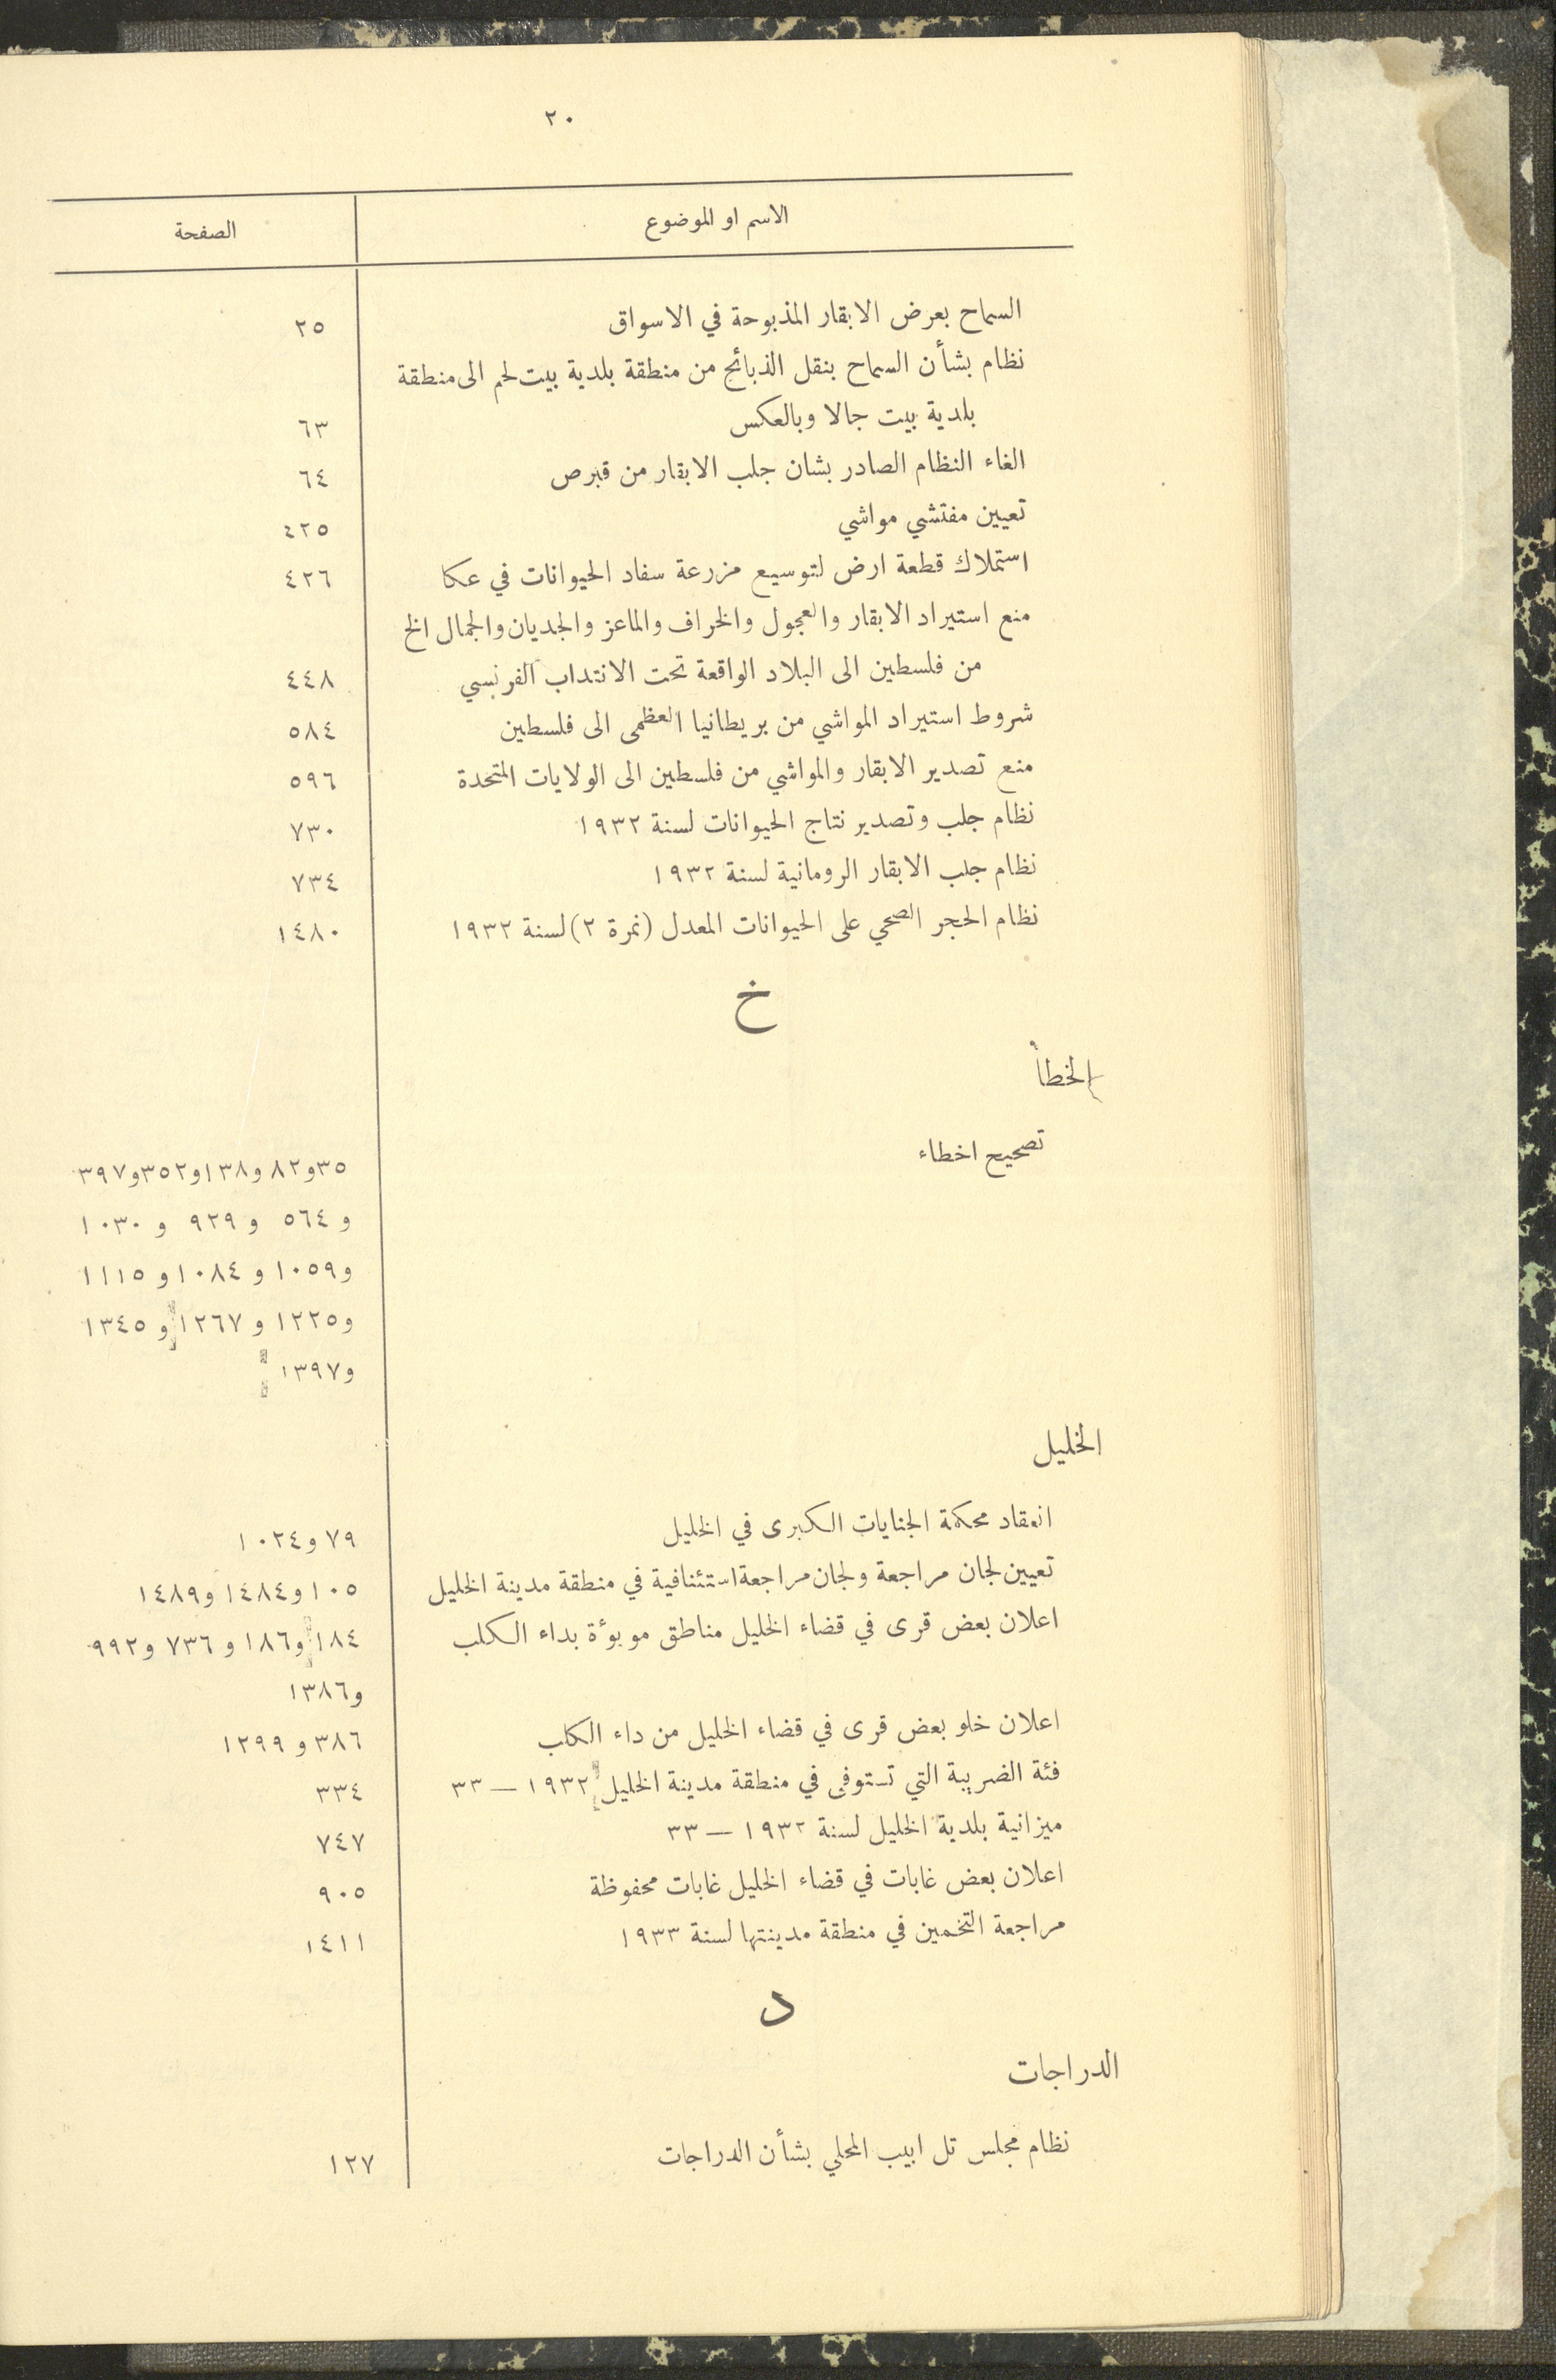 ٢٠
الاسم او الموضوع الصفحة
السماح بعرض الابقار المذبوحة في الاسواق ٢٥
نظام بشأن السماح بنقل الذبائح من منطقة بلدية بيت لحم الى منطقة
بلدية بيت جالا وبالعكس ٦٣
الغاء النظام الصادر بشان جلب الابقار من قبرص ٦٤
تعيين مفتشي مواشي ٤٢٥
استملاك قطعة ارض لتوسيع مزرعة سفاد الحيوانات في عكا ٤٢٦
منع استيراد الابقار والعجول والخراف والماعز والجديان والجمال الخ
من فلسطين الى البلاد الواقعة تحت الانتداب الفرنسي ٤٤٨
شروط استيراد المواشي من بريطانيا العظمى الى فلسطين ٥٨٤
منع تصدير الابقار والمواشي من فلسطين الى الولايات المتحدة ٥٩٦
نظام جلب وتصدير نتاج الحيوانات لسنة ١٩٣٢ ٧٣٠
نظام جلب الابقار الرومانية لسنة ١٩٣٢ ٧٣٤
نظام الحجر الصحي على الحيوانات المعدل (نمرة ٢) لسنة ١٩٣٢ ١٤٨٠
خ
الخطأ
تصحيح اخطاء ٣٥ و٨٢ و١٣٨ و٣٥٢ و٣٩٧
و ٥٦٤ و ٩٢٩ و ١٠٣٠
و١٠٥٩ و ١٠٨٤ و ١١١٥
و١٢٢٥ و ١٢٦٧ و ١٣٤٥
و١٣٩٧
الخليل
انعقاد محكمة الجنايات الكبرى في الخليل ٧٩ و١٠٢٤
تعيين لجان مراجعة ولجان مراجعة استئنافية في منطقة مدينة الخليل ١٠٥ و١٤٨٤ و١٤٨٩
اعلان بعض قرى في قضاء الخليل مناطق موبوأة بداء الكلب ١٨٤ و١٨٦ و ٧٣٦ و٩٩٢
و١٣٨٦
اعلان خلو بعض قرى في قضاء الخليل من داء الكلب ٣٨٦ و ١٢٩٩
فئة الضريبة التي تستوفى في منطقة مدينة الخليل ١٩٣٢ — ٣٣ ٣٣٤
ميزانية بلدية الخليل لسنة ١٩٣٢ — ٣٣ ٧٤٧
اعلان بعض غابات في قضاء الخليل غابات محفوظة ٩٠٥
مراجعة التخمين في منطقة مدينتها لسنة ١٩٣٣ ١٤١١
د
الدراجات
نظام مجلس تل ابيب المحلي بشأن الدراجات ١٢٧